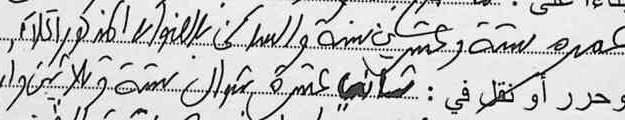 عمره ستة وعشرين سنة والساكن بالعنوان المذكور أعلاه
وحرر أو نقل في : ثاني عشرة شوال ستة وثلاثين وا